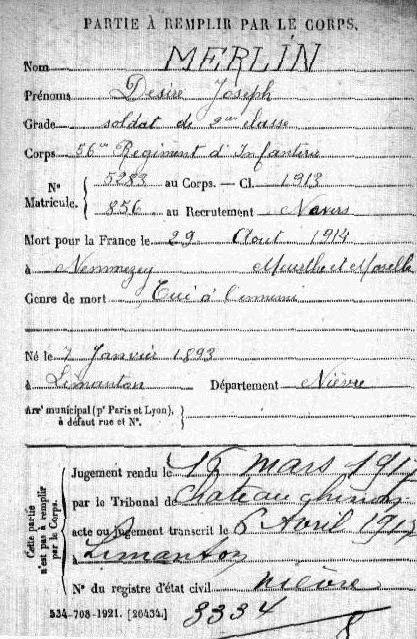 PARTIE À REMPLIR PAR LE CORPS.
Nom MERLIN
Prénoms Desiré Joseph
Grade soldat de 2me classe
Corps 56me Regiment d'Infanterie
N° Matricule. 5283 au Corps. — Cl. 1913
856 au Recrutement Nevers
Mort pour la France le 29 Aout 1914
à Meurthe et Moselle
Genre de mort Tué à l'ennemi
Né le 7 Janvier 1893
à Limanton Département Nièvre
Arrt municipal (pr Paris et Lyon), à défaut rue et N°.
Cette partie n'est pas à remplir par le Corps.
Jugement rendu le 16 Mars 1917
par le Tribunal de Chateau chinon
acte ou jugement transcrit le 6 Avril 1917
à Limanton
N° du registre d'état civil Nièvre
534-708-1921. [26434.] 3334